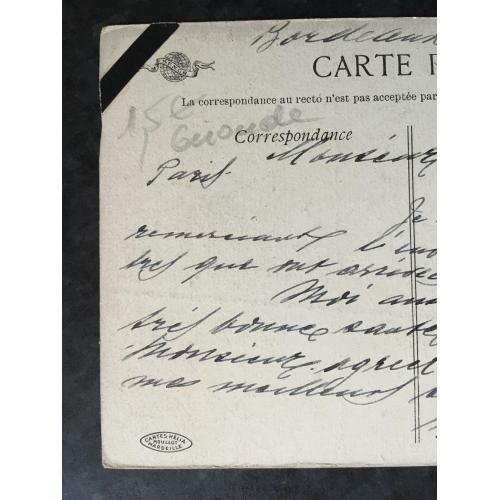 Bordeaux
CARTE P
La correspondance au recto n'est pas acceptée par
15c
Gironde
Correspondance
Monsieur
Paris
Je
remerciant l'en
tres que ont arrivée
Moi au
très bonne sante
Monsieur agréer
mes meilleurs
CARTES HÉLIA
MOULLOT
MARSEILLE